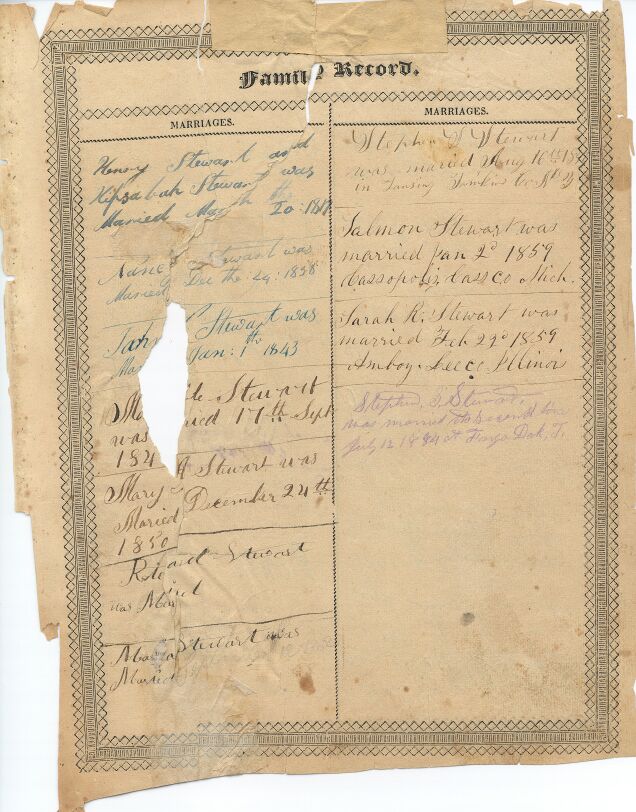 Family Record.
MARRIAGES.
Henry Stewart and
Stewart was
Married March the
20: 1817
Stewart was
Married Dec the 24: 1838
Stewart was
Jan: 1st 1843
Stewart
was ried 17th Sept
184
Mary A Stewart was
Maried December 24th
1850
Stewart
was Mar
Stewart was
Married
MARRIAGES.
Stephen S Stewart
was maried Aug 16th 185
in Lansing Tomkins Co. N. Y
Salmon Stewart was
married Jan 2d 1859
Cassopolis, Cass Co Mich.
Sarah R. Stewart was
married Feb 22d 1859
Amboy Lee Co Illinois
Stephen S. Stewart,
was married the second time
July 12 1884 at Fargo Dak, T.